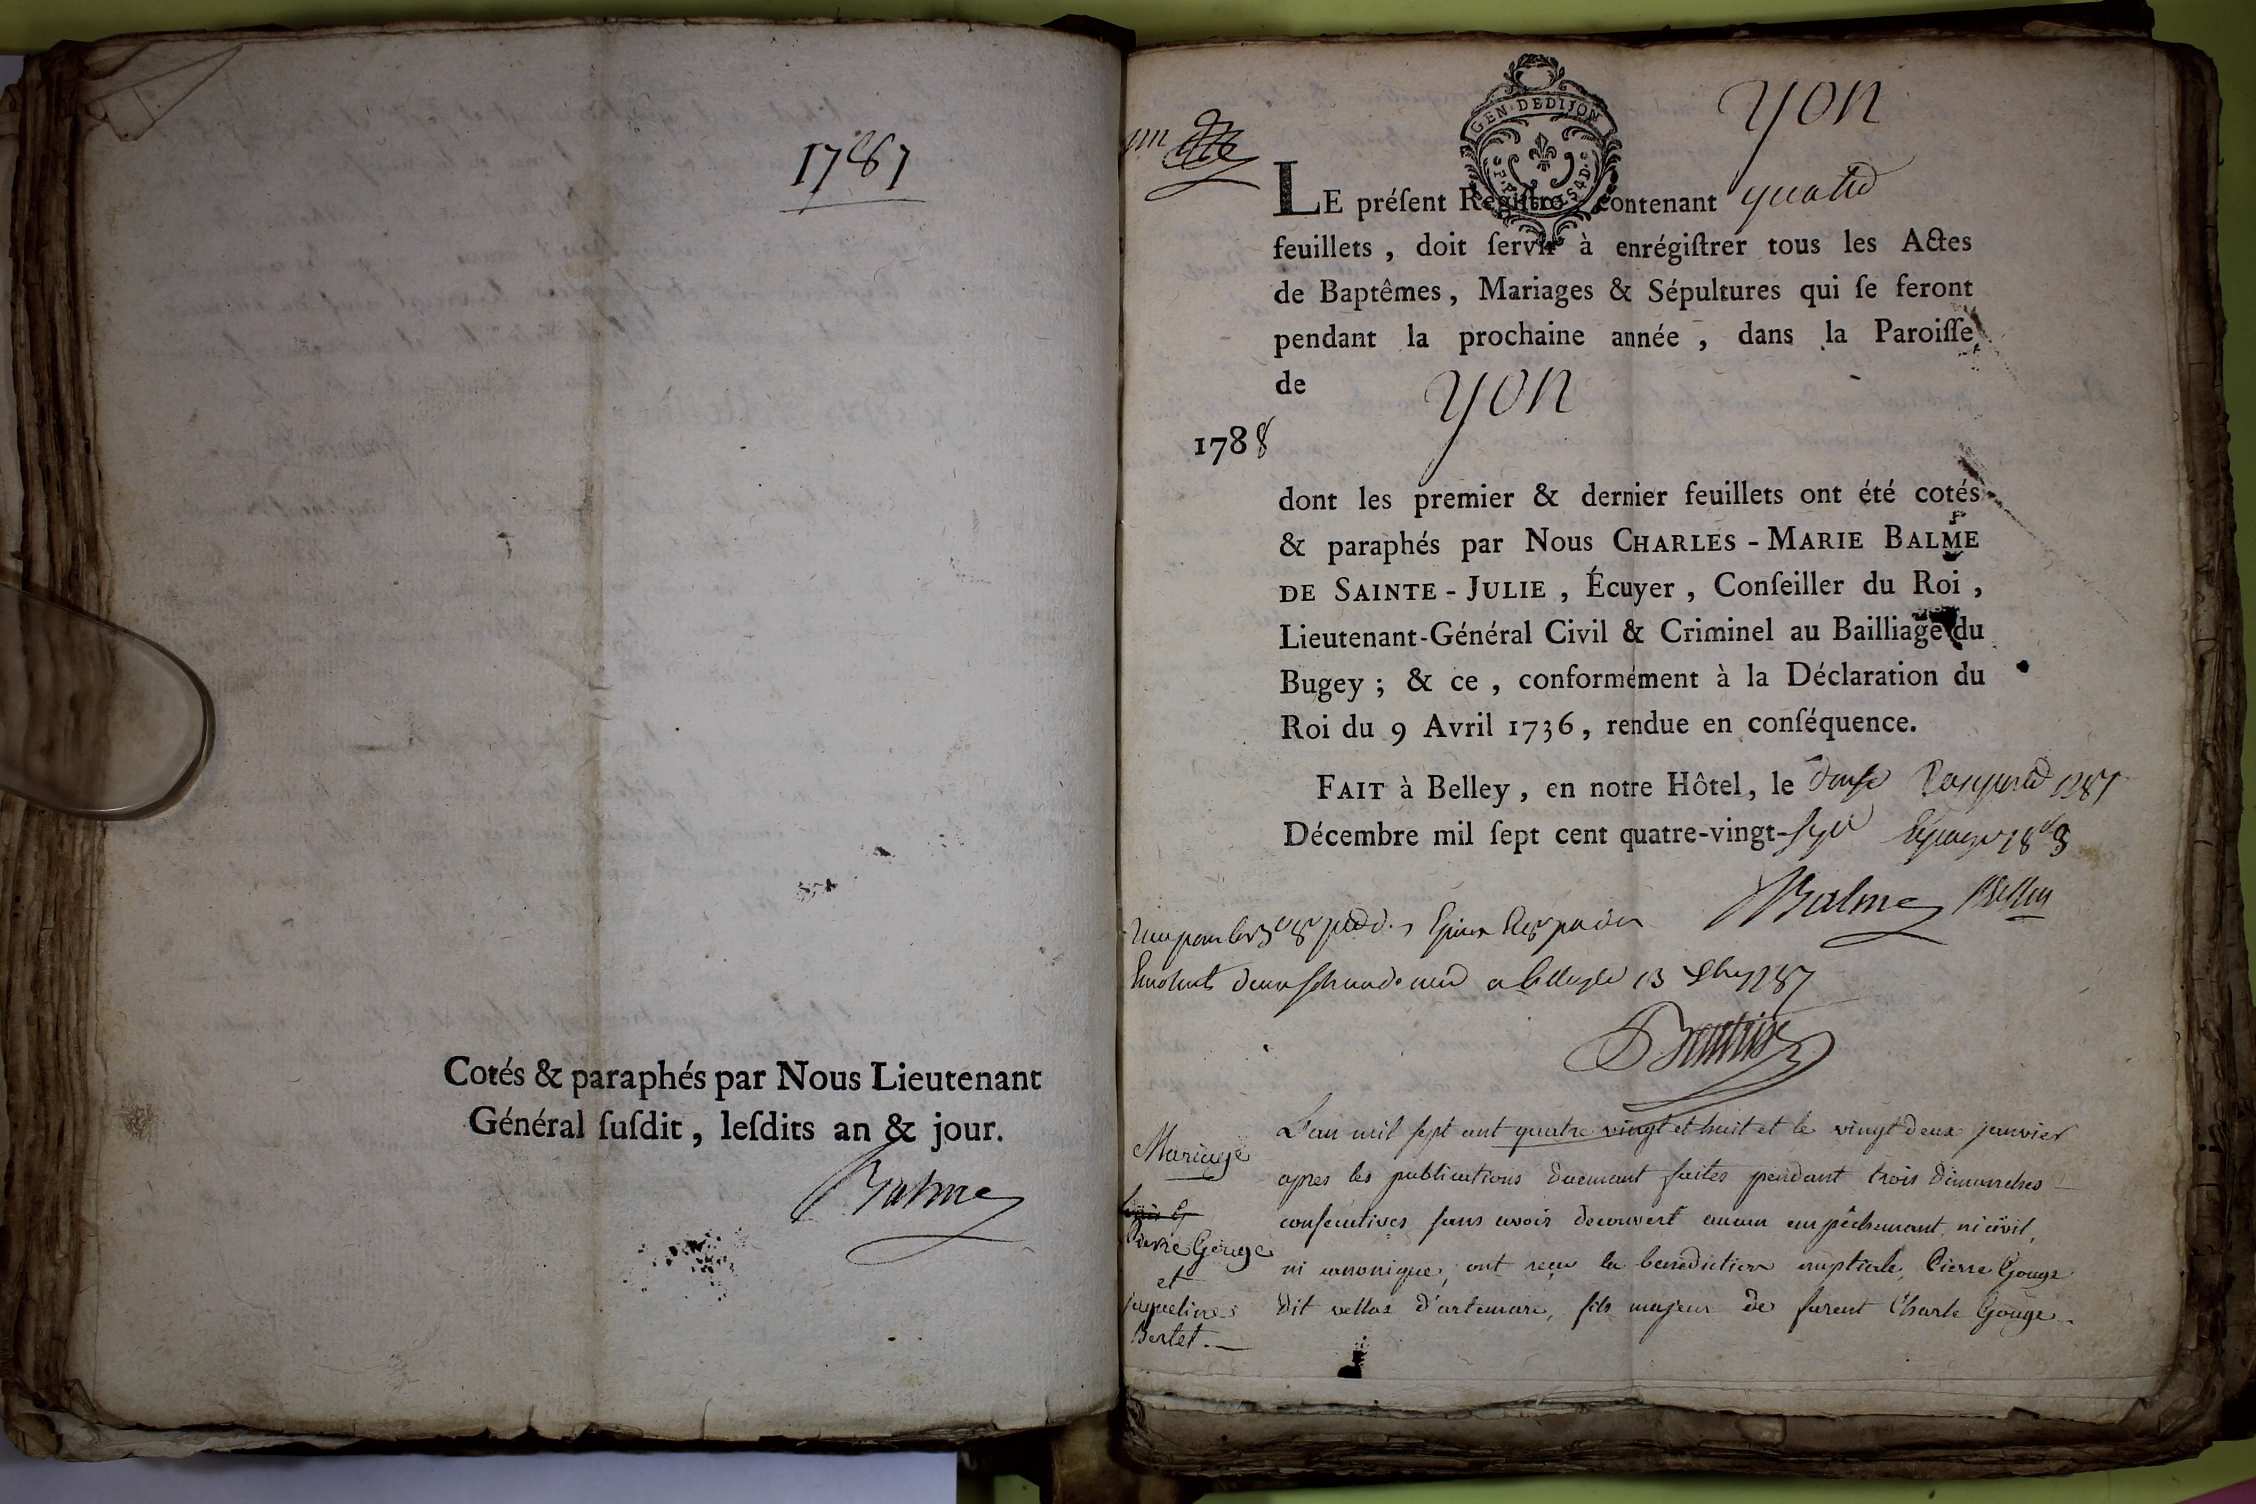 1787
Cotés & paraphés par Nous Lieutenant
Général ſuſdit, leſdits an & jour.
Balme
GEN·DEDIJON
Yon
LE préſent Regiſtre contenant quatre
feuillets, doit ſervir à enrégiſtrer tous les Actes
de Baptêmes, Mariages & Sépultures qui ſe feront
pendant la prochaine année, dans la Paroiſſe
de Yon
1788
dont les premier & dernier feuillets ont été cotés
& paraphés par Nous CHARLES-MARIE BALME
DE SAINTE-JULIE, Écuyer, Conſeiller du Roi,
Lieutenant-Général Civil & Criminel au Bailliage du
Bugey; & ce, conformément à la Déclaration du
Roi du 9 Avril 1736, rendue en conſéquence.
FAIT à Belley, en notre Hôtel, le douse
Décembre mil ſept cent quatre-vingt-ſept
Balme
a belley le 13 1787
Mariage
Pierre Gouge
et
jaqueline
Bertet.
L'an mil sept cent quatre vingt et huit et le vingt deux janvier
apres les publications duemant faites pendant trois dimanches
consecutives sans avoir decouvert aucun empêchemant, ni civil,
ni canonique, ont reçu la benediction nuptiale, Pierre Gouge
dit vellas d'artemare, fils majeur de furent Charle Gouge